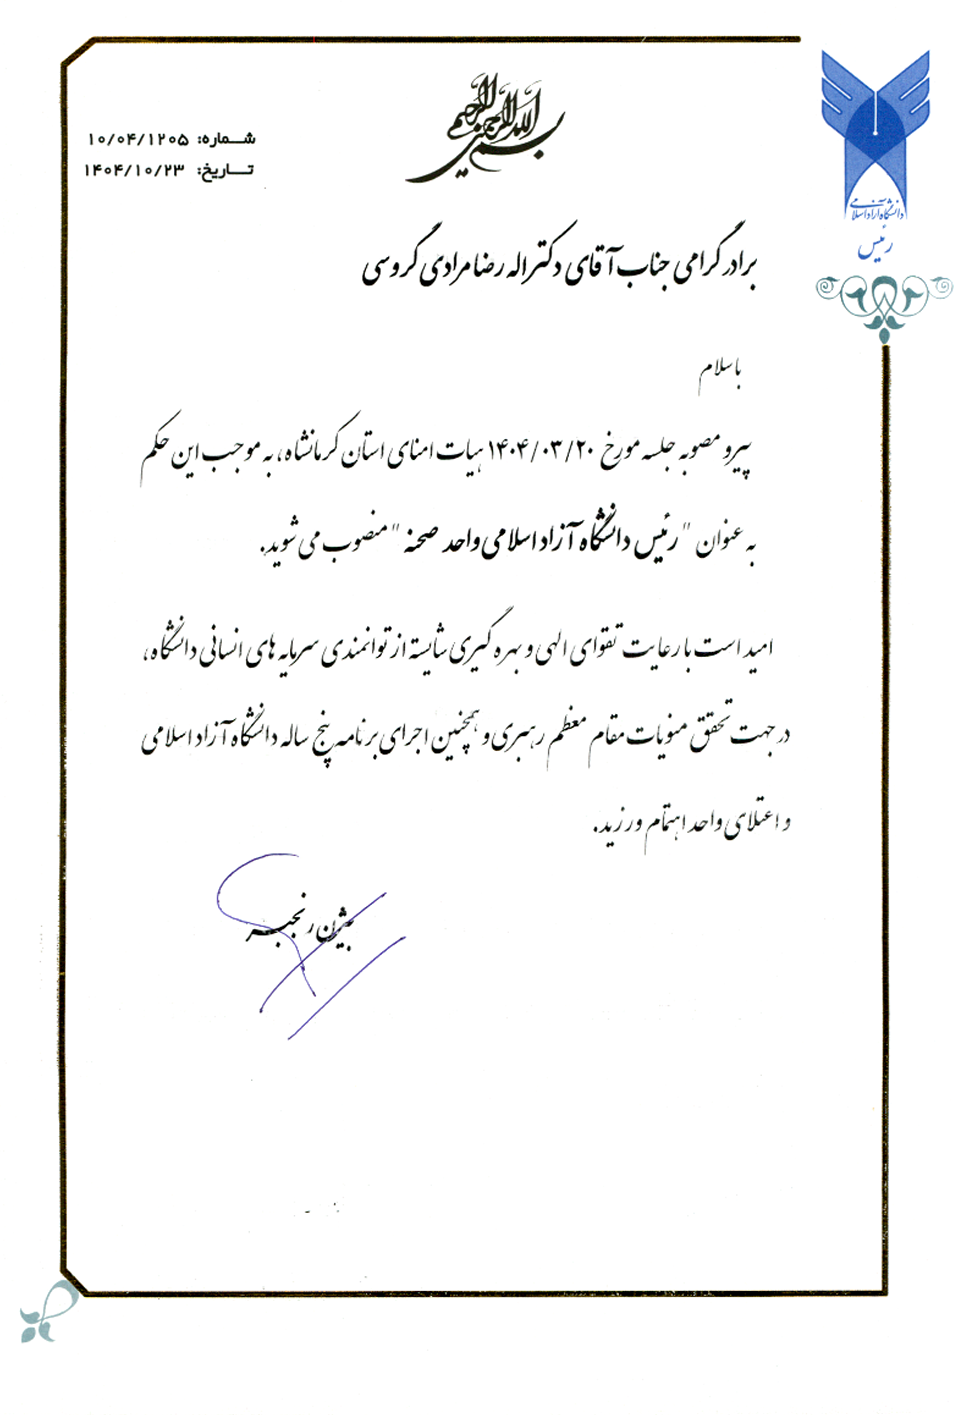 بسم الله الرحمن الرحیم
دانشگاه آزاد اسلامی
رئیس
شماره: ۱۰/۰۴/۱۲۰۵
تاریخ: ۱۴۰۴/۱۰/۲۳
برادر گرامی جناب آقای دکتر اله رضا مرادی گروسی
باسلام
پیرو مصوبه جلسه مورخ ۱۴۰۴/۰۳/۲۰ هیات امنای استان کرمانشاه، به موجب این حکم
به عنوان "رئیس دانشگاه آزاد اسلامی واحد صحنه" منصوب می شوید.
امید است با رعایت تقوای الهی و بهره گیری شایسته از توانمندی سرمایه های انسانی دانشگاه،
در جهت تحقق منویات مقام معظم رهبری و همچنین اجرای برنامه پنج ساله دانشگاه آزاد اسلامی
و اعتلای واحد اهتمام ورزید.
بیژن رنجبر